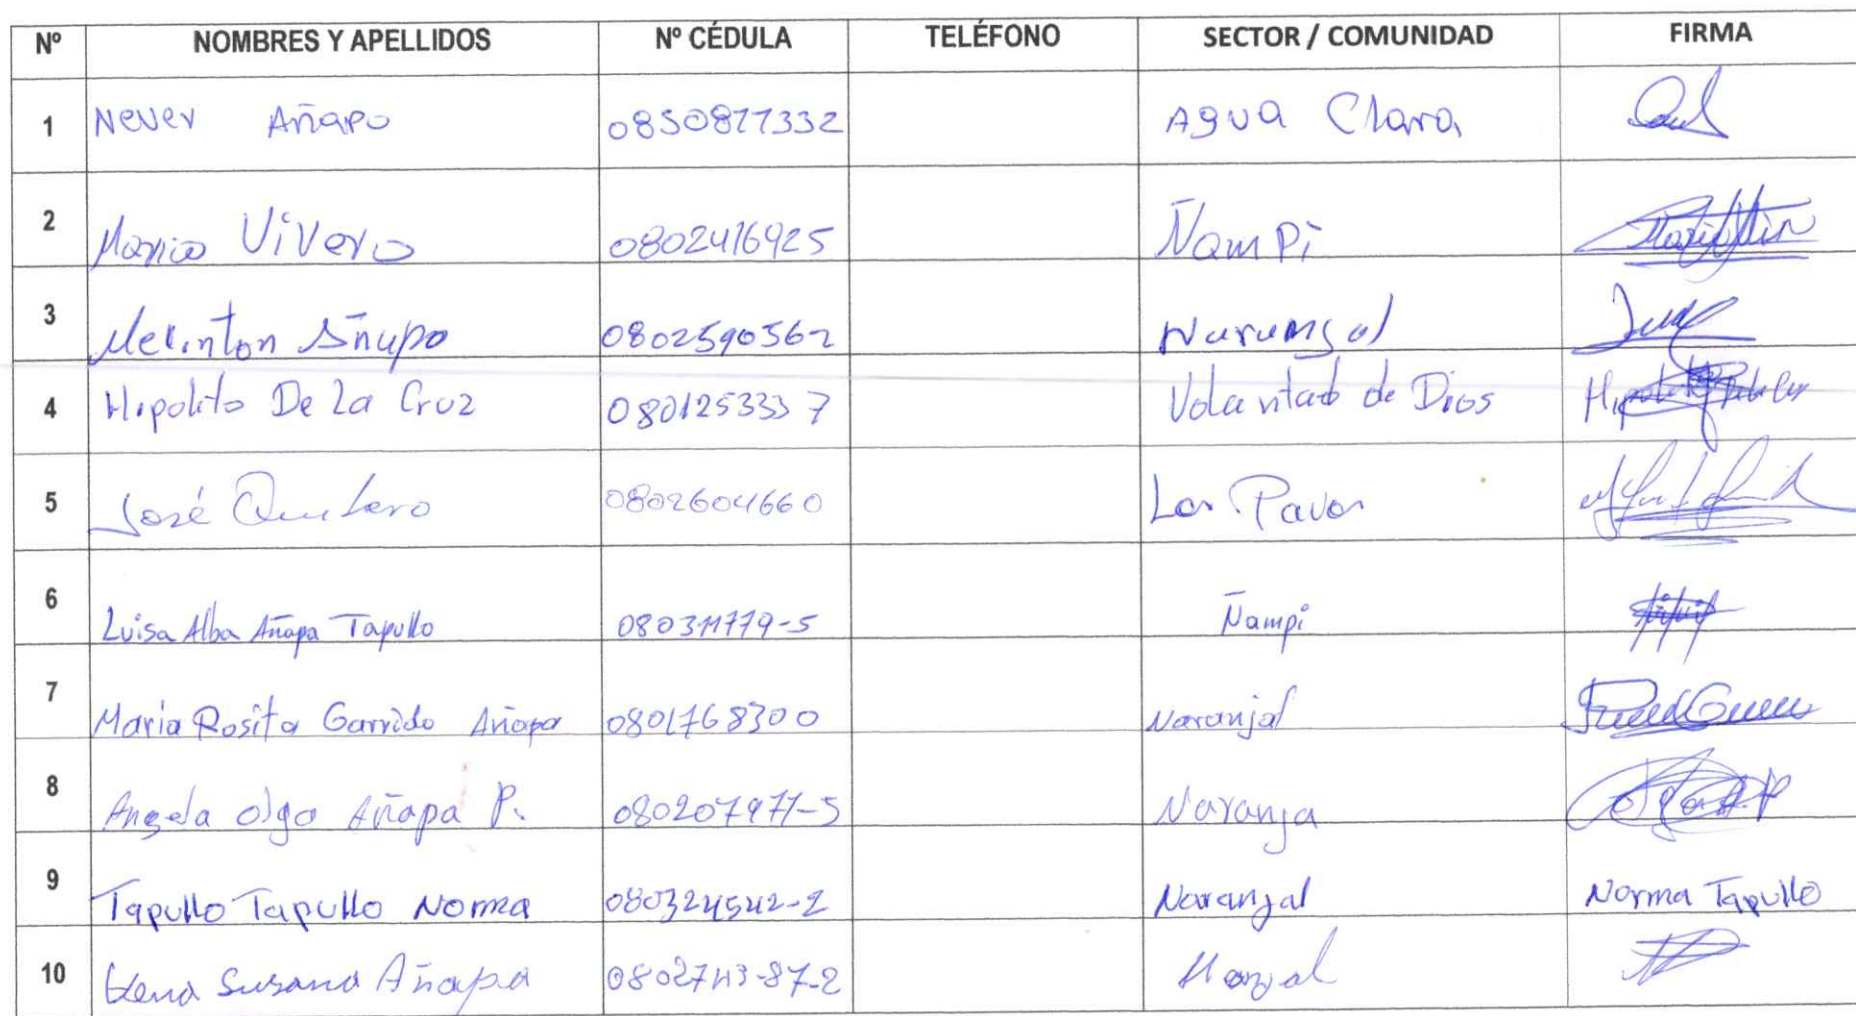 Nº NOMBRES Y APELLIDOS Nº CÉDULA TELÉFONO SECTOR / COMUNIDAD FIRMA
1 Never Añapo 0850877332 Agua Clara
2 Mario Vivero 0802416925 Ñampi
3 Merinton Añapo 0802590562 Naranjal
4 Hipolito De La Cruz 0801253337 Volavntad de Dios
5 José Quintero 0802604660 Los Pavos
6 Luisa Alba Añapa Tapullo 080311779-5 Ñampi
7 Maria Rosita Garrido Añapa 0801768300 Naranjal
8 Angela Olga Añapa P. 080207977-5 Naranja
9 Tapullo Tapullo Norma 080324542-2 Naranjal Norma Tapullo
10 Susana Añapa